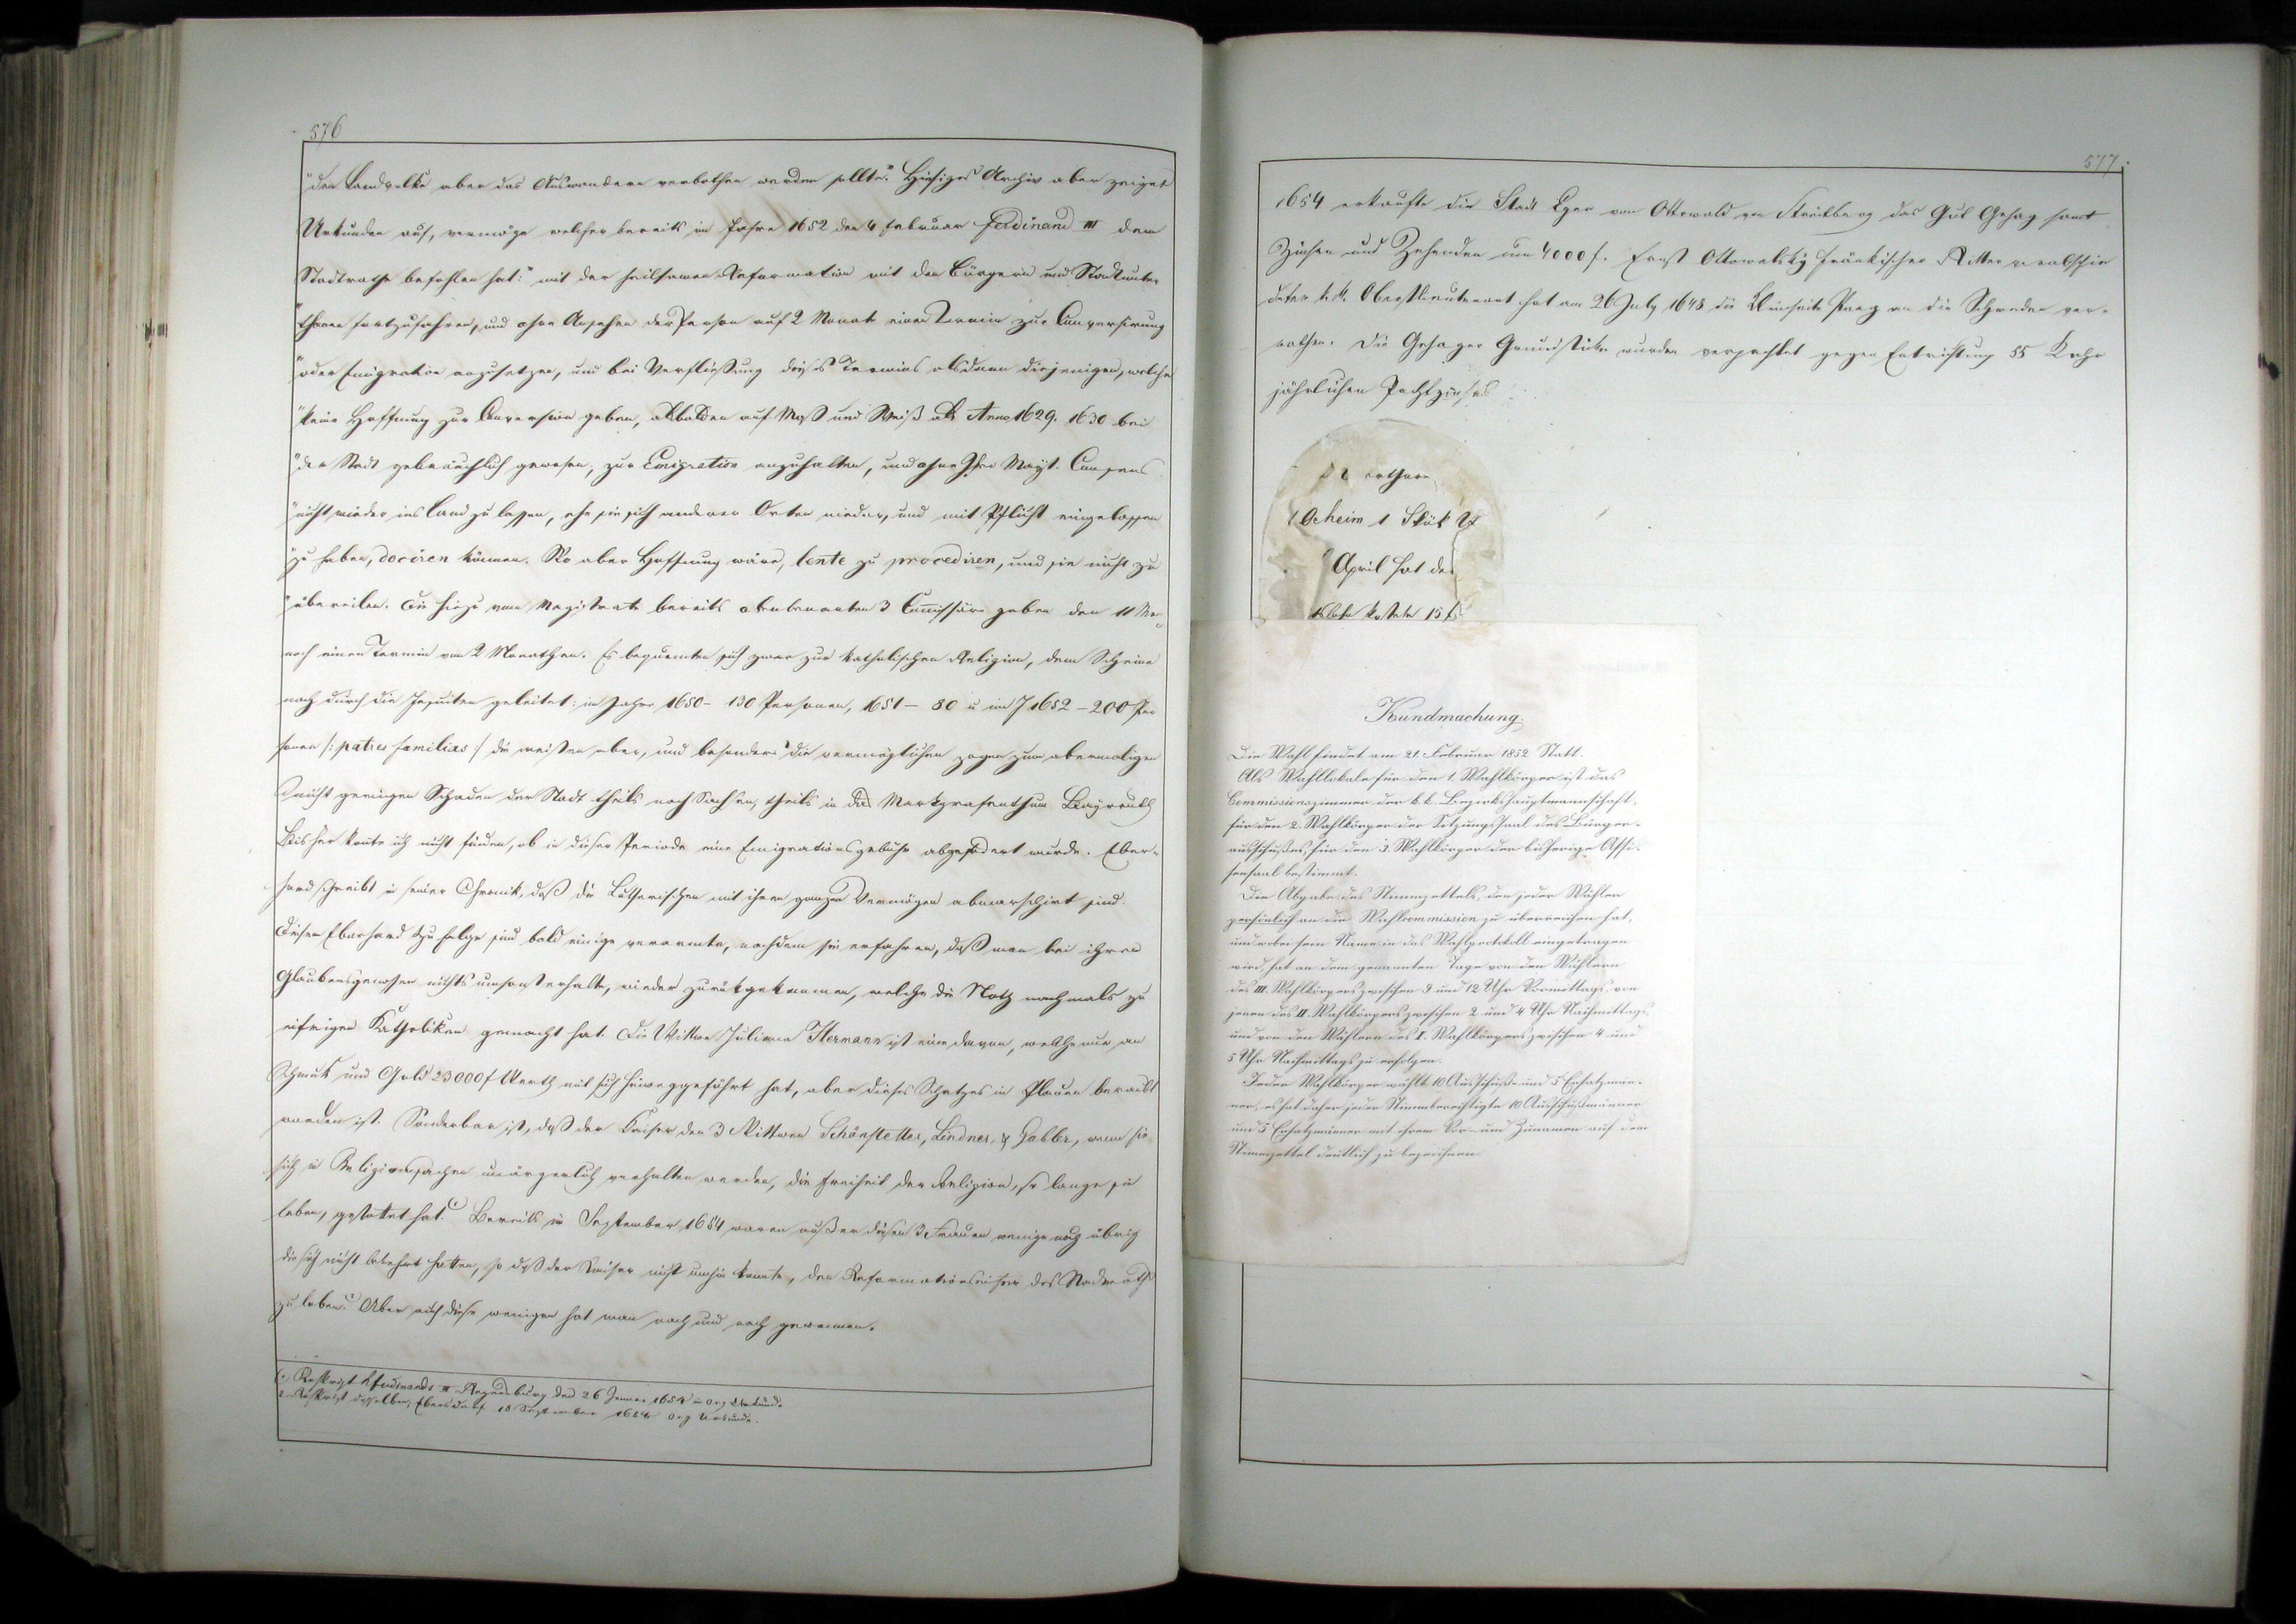 576
"dem Landvolke aber das Auswandern verbothen werden sollte." Hiesiges Archiv aber zeiget
Urkunden auf, vermöge welcher bereits im Jahre 1652 den 4 Februar Ferdinand III dem
Stadtrathe befohlen hat: "mit der heilsamen Reformation mit den Bürgern und Stadtunter
"thanen fortzufahren, und ohne Ansehen der Person auf 2 Monate einen Termin zur Conversirung
"oder Emigration anzusetzen, und bei Verfließung dieses Termins alsdann diejenigen, welche
"keine Hoffnung zur Conversion geben, allbalden auf Maß und Weiß als Anno 1629. 1630 bei
"der Stadt gebräuchlich gewesen, zur Emigration anzuhalten, und ohne Ihro Mayt. Consens
"nicht wieder ins Land zu lassen, ehe sie sich anderer Orten nieder, und mit Pflicht eingelassen
"zu haben, dociren können. Wo aber Hoffnung wäre, lente zu procediren, und sie nicht zu
"übereilen. Die hiezu vom Magistrate bereits obenbenanten 3 Commissäre geben den 11
noch einen Termin von 2 Monathen. Es bequemten sich zwar zur katholischen Religion, dem Scheine
nach durch die Jesuiten geleitet: im Jahre 1650 – 130 Personen, 1651 – 80 u im J 1652 – 200 Per
sonen /: patres familias :/ die meisten aber, und besonders die vermöglichen zogen zum abermaligen
nicht geringen Schaden der Stadt theils nach Sachsen, theils in das Markgrafenthum Bayreuth
Bisher konnte ich nicht finden, ob in dieser Periode eine Emigrationsgebühr abgefodert wurde. Eber-
hard schreibt in seiner Chronik, daß die Lutherischen mit ihrem ganzen Vermögen abmarschirt sind.
Diesem Eberhard zu Folge sind bald einige verarmte, nachdem sie erfahren, daß man bei ihren
Glaubensgenossen nichts umsonst erhalte, wieder zurükgekommen, welche die Noth nachmals zu
eifrigen Katholiken gemacht hat. Die Wittwe Juliana Hermann ist eine davon, welche nur an
Schmuk und Gold 23000 f Werth mit sich hinweggeführt hat, aber dieses Schatzes in Plauen beraubt
worden ist. Sonderbar ist, daß der Kaiser den 3 Wittwen Schönstetter, Lindner, & Gabler, wenn sie
sich in Religionssachen unärgerlich verhalten werden, die Freiheit der Religion, so lange sie
leben, gestattet hat. Bereits im September 1654 waren außer diesen 3 Frauen wenige noch übrig
die sich nicht bekehrt hatten, so daß der Kaiser nicht umhin konnte, den Reformationseifer des Stadtraths
zu loben. Aber auch diese wenigen hat man nach und nach gewonnen.
Reskript Ferdinands III Regensburg den 26 Jenner 1654 Org Urkunde
2. Reskript desselben, Ebersdorf 18 September 1654 Org Urkunde.
577
1654 erkaufte die Stadt Eger von Ottowald von das Gut Gehag samt
Zinsen und Zehenden um 4000 f. Ernst Ottowalsky fränkischer Ritter verabschie
deter k. k. Oberstlieutenant hat am 26 July 1648 die Kleinseite Prag an die Schweden ver-
rathen. Die Gehager Grundstüke wurden verpachtet gegen Entrichtung 55
jährlichen Pachtzinses
Ocheim 1 Stük
April hat de
kostete 15 f
Kundmachung.
Die Wahl findet am 21. Februar 1852 Statt.
Als Wahllokale für den 1. Wahlkörper ist das
Commissionszimmer der k. k. Bezirkshauptmannschaft,
für den 2. Wahlkörper der Sitzungssaal des Bürger-
ausschußes, für den 3. Wahlkörper der bisherige Assi-
sensaal bestimmt.
Die Abgabe des Stimmzettels, den jeder Wähler
persönlich an die Wahlcommission zu überreichen hat,
und wobei sein Name in das Wahlprotokoll eingetragen
wird, hat an dem genannten Tage von den Wählern
des III. Wahlkörpers zwischen 9 und 12 Uhr Vormittags, von
jenen des II. Wahlkörpers zwischen 2 und 4 Uhr Nachmittags,
und von den Wählern des I. Wahlkörpers zwischen 4 und
5 Uhr Nachmittags zu erfolgen.
Jeder Wahlkörper wählt 10 Ausschuß- und 5 Ersatzmän-
ner, es hat daher jeder Stimmberechtigte 10 Ausschußmänner
und 5 Ersatzmänner mit ihrem Vor- und Zunamen auf dem
Stimmzettel deutlich zu bezeichnen.